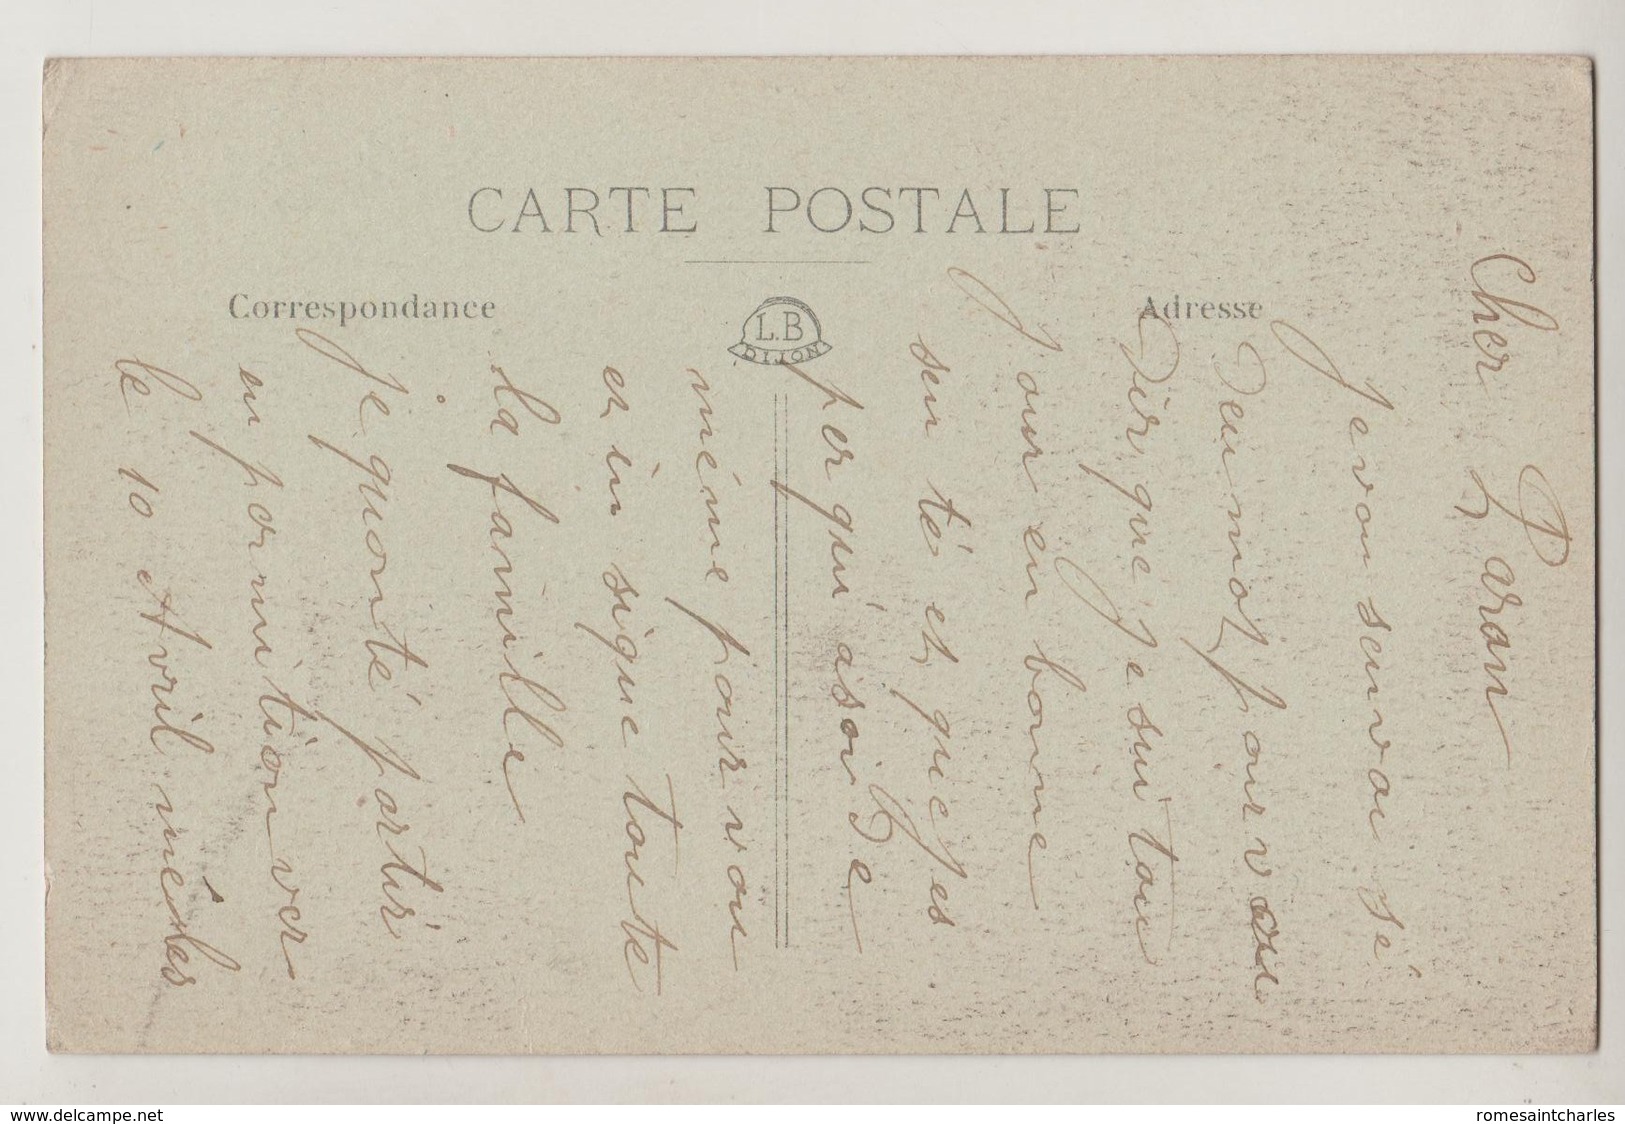 CARTE POSTALE
Correspondance
L.B
DIJON
Adresse
Cher Paran
Je vou sanvoi sé
deu mot pour vou
dir que je sui tou
jour en bonne
sen té et que jes
per qui á soi de
méme pour vou
et in si que toute
la famille
je quonté partir
en pormition ver
le 10 Avril
www.delcampe.net
romesaintcharles